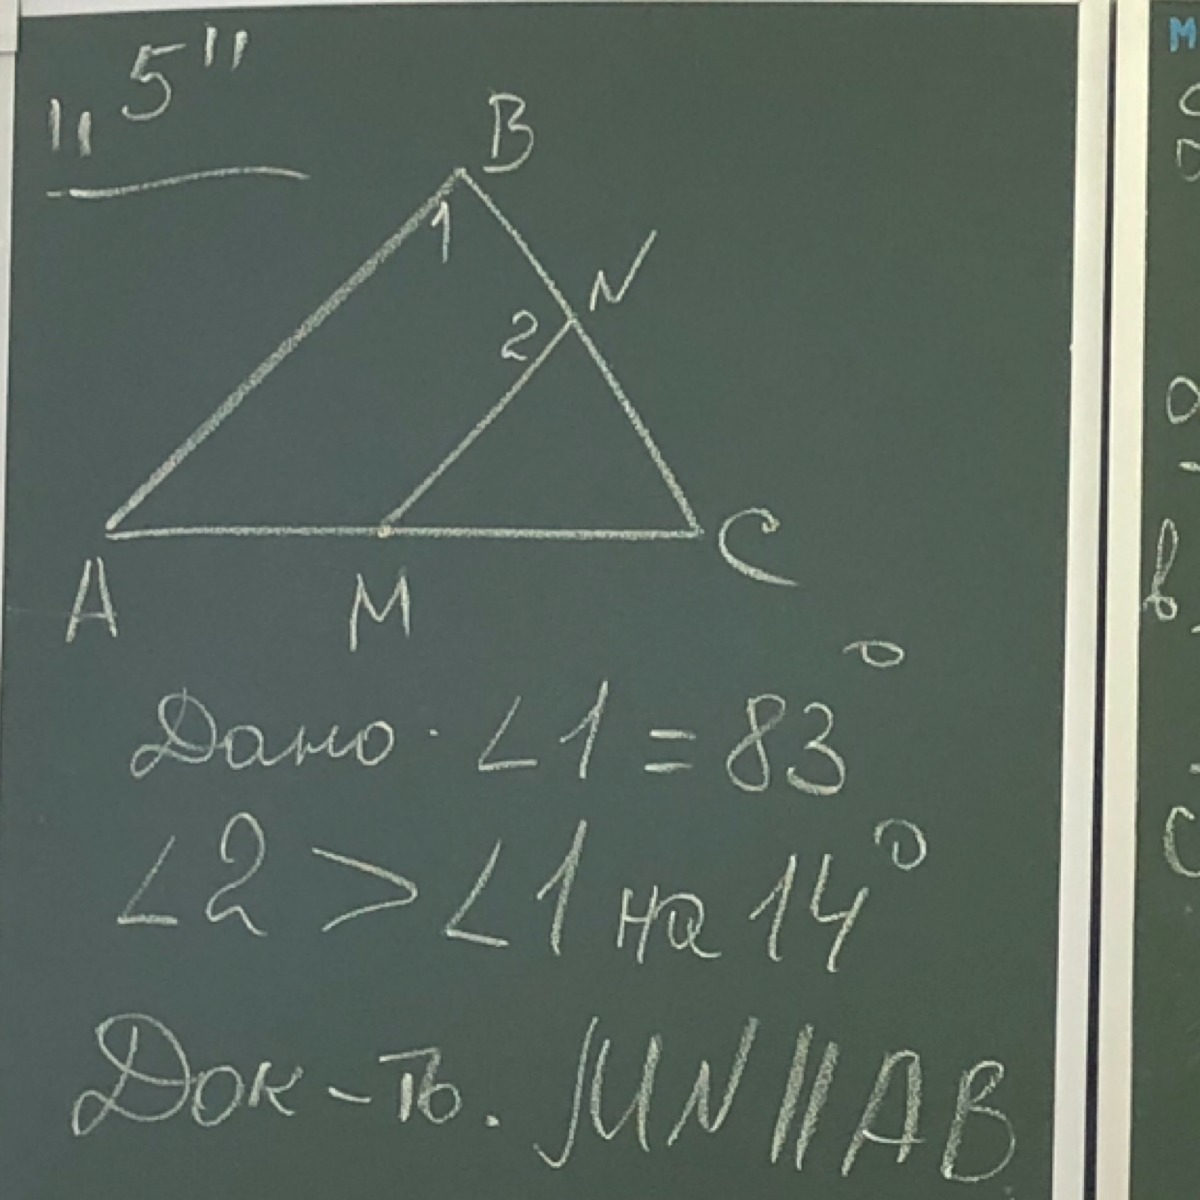 „5"
B
1
N
2
A M C
Дано. ∠1 = 83°
∠2 > ∠1 на 14°
Док-ть. MN || AB